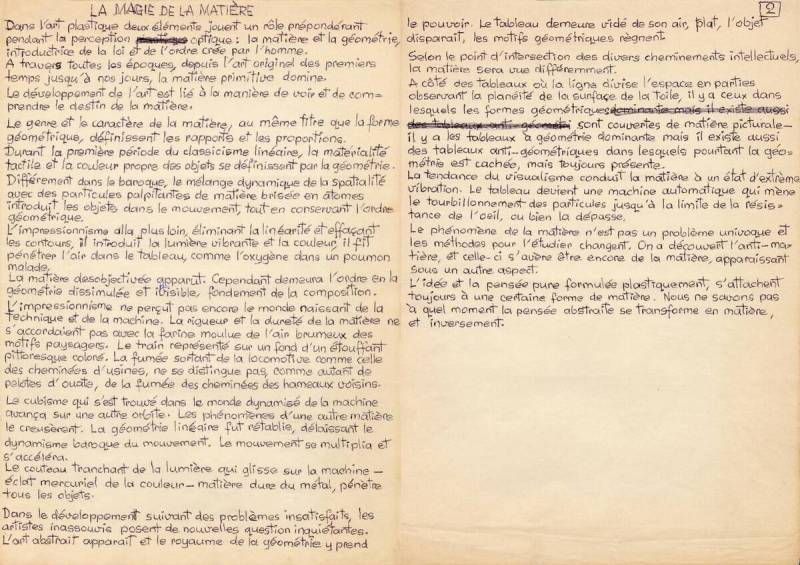 LA MAGIE DE LA MATIÈRE
Dans l'art plastique deux éléments jouent un rôle prépondérant
pendant la perception optique : la matière et la géométrie,
introductrice de la loi et de l'ordre crée par l'homme.
A travers toutes les époques, depuis l'art originel des premiers
temps jusqu'à nos jours, la matière primitive domine.
Le développement de l'art est lié à la manière de voir et de com-
prendre le destin de la matière.
Le genre et le caractère de la matière, au même titre que la forme
géométrique, définissent les rapports et les proportions.
Durant la première période du classicisme linéaire, la matérialité
tactile et la couleur propre des objets se définissent par la géométrie.
Différement dans le baroque, le mélange dynamique de la spatialité
avec des particules palpitantes de matière brisée en atomes
introduit les objets dans le mouvement, tout en conservant l'ordre
géométrique.
L'impressionnisme alla plus loin, éliminant la linéarité et effaçant
les contours, il introduit la lumière vibrante et la couleur, il fit
pénétrer l'air dans le tableau, comme l'oxygène dans un poumon
malade.
La matière desobjectivée apparût. Cependant demeura l'ordre en la
géométrie dissimulée et ivisible, fondement de la composition.
L'impressionnisme ne perçut pas encore le monde naissant de la
technique et de la machine. La rigueur et la dureté de la matière ne
s'accordaient pas avec la farine moulue de l'air brumeux des
motifs paysagers. Le train représenté sur un fond d'un étouffant
pittoresque coloré. La fumée sortant de la locomotive comme celle
des cheminées d'usines, ne se distingue pas, comme autant de
pelotes d'ouate, de la fumée des cheminées des hameaux voisins.
Le cubisme qui s'est trouvé dans le monde dynamisé de la machine
avança sur une autre orbite. Les phénomènes d'une autre matière
le creusèrent. La géométrie linéaire fut rétablie, délaissant le
dynamisme baroque du mouvement. Le mouvement se multiplia et
s'accéléra.
Le couteau tranchant de la lumière qui glisse sur la machine –
éclat mercuriel de la couleur – matière dure du métal, pénètre
tous les objets.
Dans le développement suivant des problèmes insatisfaits, les
artistes inassouvis posent de nouvelles question inquiétantes.
L'art abstrait apparait et le royaume de la géométrie y prend
2
le pouvoir. Le tableau demeure vidé de son air, plat, l'objet
disparaît, les motifs géométriques règnent
Selon le point d'intersection des divers cheminements intellectuels,
la matière sera vue différemment.
A côté des tableaux où la ligne divise l'espace en parties
observant la planéité de la surface de la toile, il y a ceux dans
lesquels les formes géométriques dominante mais il existe aussi
des tableaux anti-géométri sont couvertes de matière picturale –
il y a les tableaux à géométrie dominante mais il existe aussi
des tableaux anti-géométriques dans lesquels pourtant la géo-
métrie est cachée, mais toujours présente.
La tendance du visualisme conduit la matière à un état d'extrême
vibration. Le tableau devient une machine automatique qui mène
le tourbillonnement des particules jusqu'à la limite de la résis-
tance de l'oeil, ou bien la dépasse.
Le phénomène de la matière n'est pas un problème univoque et
les méthodes pour l'étudier changent. On a découvert l'anti-ma-
tière, et celle-ci s'avère être encore de la matière, apparaissant
sous un autre aspect.
L'idée et la pensée pure formulée plastiquement, s'attachent
toujours à une certaine forme de matière. Nous ne savons pas
à quel moment la pensée abstraite se transforme en matière,
et inversement.